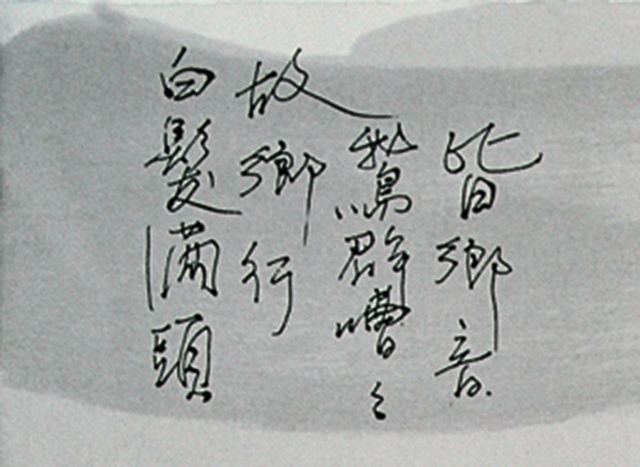 白髮滿頭
故鄉行
鵞群嘈々
皆鄉音